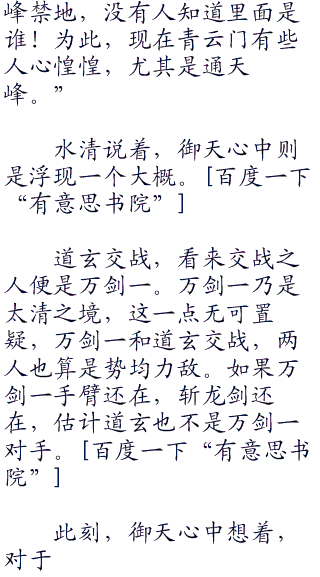 峰禁地，没有人知道里面是
谁！为此，现在青云门有些
人心惶惶，尤其是通天
峰。”
水清说着，御天心中则
是浮现一个大概。[百度一下
“有意思书院”]
道玄交战，看来交战之
人便是万剑一。万剑一乃是
太清之境，这一点无可置
疑，万剑一和道玄交战，两
人也算是势均力敌。如果万
剑一手臂还在，斩龙剑还
在，估计道玄也不是万剑一
对手。[百度一下“有意思书
院”]
此刻，御天心中想着，
对于